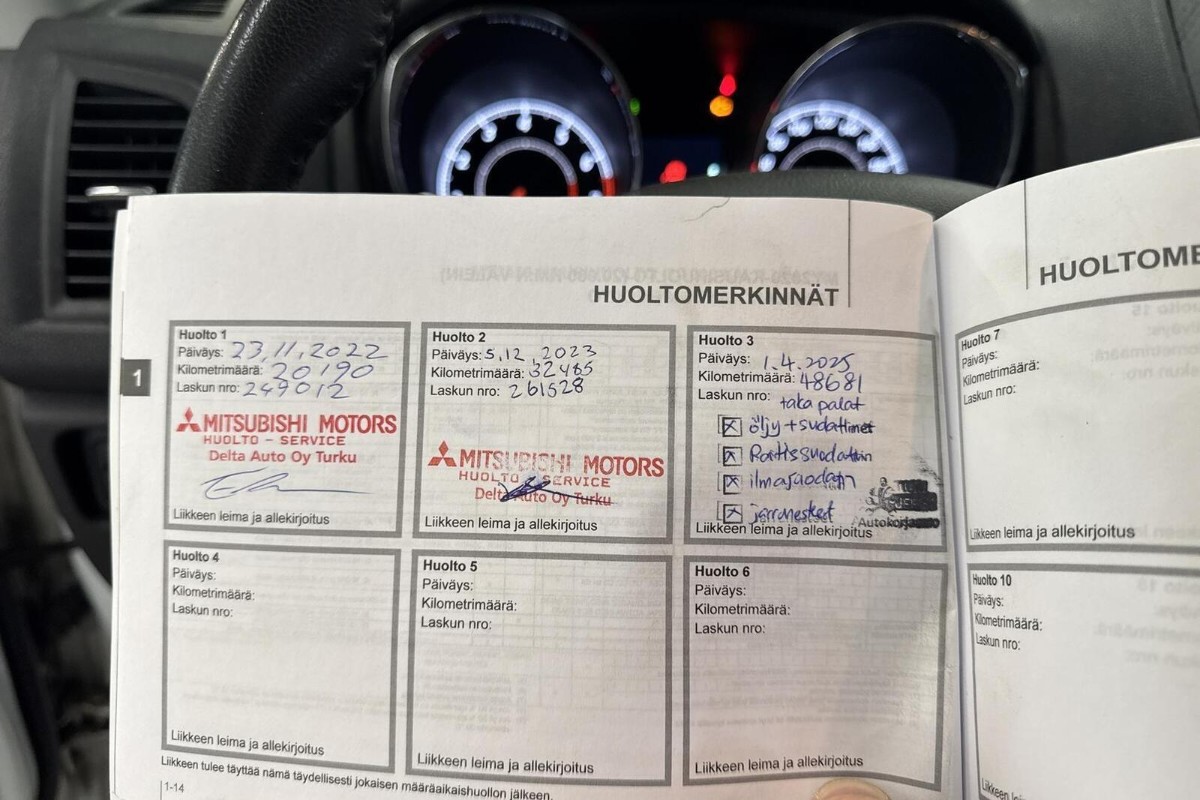 HUOLTOMERKINNÄT
Huolto 1
Päiväys: 23.11.2022
Kilometrimäärä: 20190
Laskun nro: 249012
MITSUBISHI MOTORS
HUOLTO - SERVICE
Delta Auto Oy Turku
Liikkeen leima ja allekirjoitus
Huolto 2
Päiväys: 5.12.2023
Kilometrimäärä: 32485
Laskun nro: 261528
MITSUBISHI MOTORS
HUOLTO - SERVICE
Delta Auto Oy Turku
Liikkeen leima ja allekirjoitus
Huolto 3
Päiväys: 1.4.2025
Kilometrimäärä: 48681
Laskun nro:
taka palat
öljy + sudattimet
ilmasuodatin
jarrunesteet
Autokorjaamo
Liikkeen leima ja allekirjoitus
1
Huolto 4
Päiväys:
Kilometrimäärä:
Laskun nro:
Liikkeen leima ja allekirjoitus
Huolto 5
Päiväys:
Kilometrimäärä:
Laskun nro:
Liikkeen leima ja allekirjoitus
Huolto 6
Päiväys:
Kilometrimäärä:
Laskun nro:
Liikkeen leima ja allekirjoitus
Liikkeen tulee täyttää nämä täydellisesti jokaisen määräaikaishuollon jälkeen.
1-14
HUOLTOME
Huolto 7
Päiväys:
Kilometrimäärä:
Laskun nro:
Liikkeen leima ja allekirjoitus
Huolto 10
Päiväys:
Kilometrimäärä:
Laskun nro: